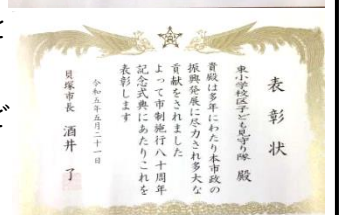 表彰状
東小学校区子ども見守り隊 殿
貴殿は多年にわたり本市政の
振興発展に尽力され多大な
貢献をされました
よって市制施行八十周年
記念式典にあたりこれを
表彰します
令和五年五月二十一日
貝塚市長 酒井 了